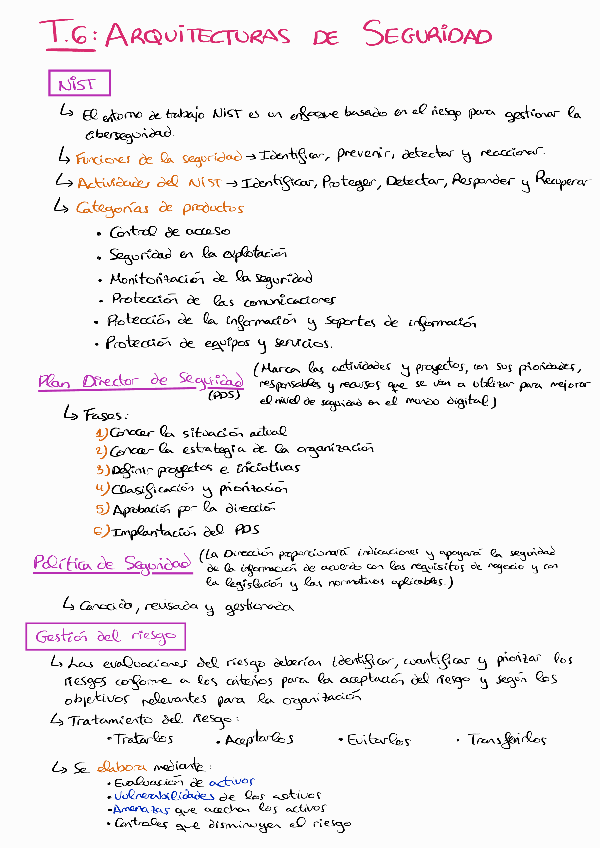 T.6: ARQUITECTURAS DE SEGURIDAD
NIST
↳ El entorno de trabajo NIST es un enfoque basado en el riesgo para gestionar la
ciberseguridad.
↳ Funciones de la seguridad → Identificar, prevenir, detectar y reaccionar.
↳ Actividades del NIST → Identificar, Proteger, Detectar, Responder y Recuperar
↳ Categorías de productos
• Control de acceso
• Seguridad en la explotación
• Monitorización de la seguridad
• Protección de las comunicaciones
• Protección de la información y soportes de información
• Protección de equipos y servicios.
Plan Director de Seguridad (Marca las actividades y proyectos, con sus prioridades,
(PDS) responsables y recursos que se van a utilizar para mejorar
el nivel de seguridad en el mundo digital)
↳ Fases:
1) Conocer la situación actual
2) Conocer la estrategia de la organización
3) Definir proyectos e iniciativas
4) Clasificación y priorización
5) Aprobación por la dirección
6) Implantación del PDS
Política de Seguridad (La Dirección proporcionará indicaciones y apoyará la seguridad
de la información de acuerdo con los requisitos de negocio y con
la legislación y las normativas aplicables.)
↳ Conocida, revisada y gestionada
Gestión del riesgo
↳ Las evaluaciones del riesgo deberían identificar, cuantificar y priorizar los
riesgos conforme a los criterios para la aceptación del riesgo y según los
objetivos relevantes para la organización
↳ Tratamiento del riesgo:
• Tratarlos • Aceptarlos • Evitarlos • Transferirlos
↳ Se elabora mediante:
• Evaluación de activos
• Vulnerabilidades de los activos
• Amenazas que acechan los activos
• Controles que disminuyen el riesgo